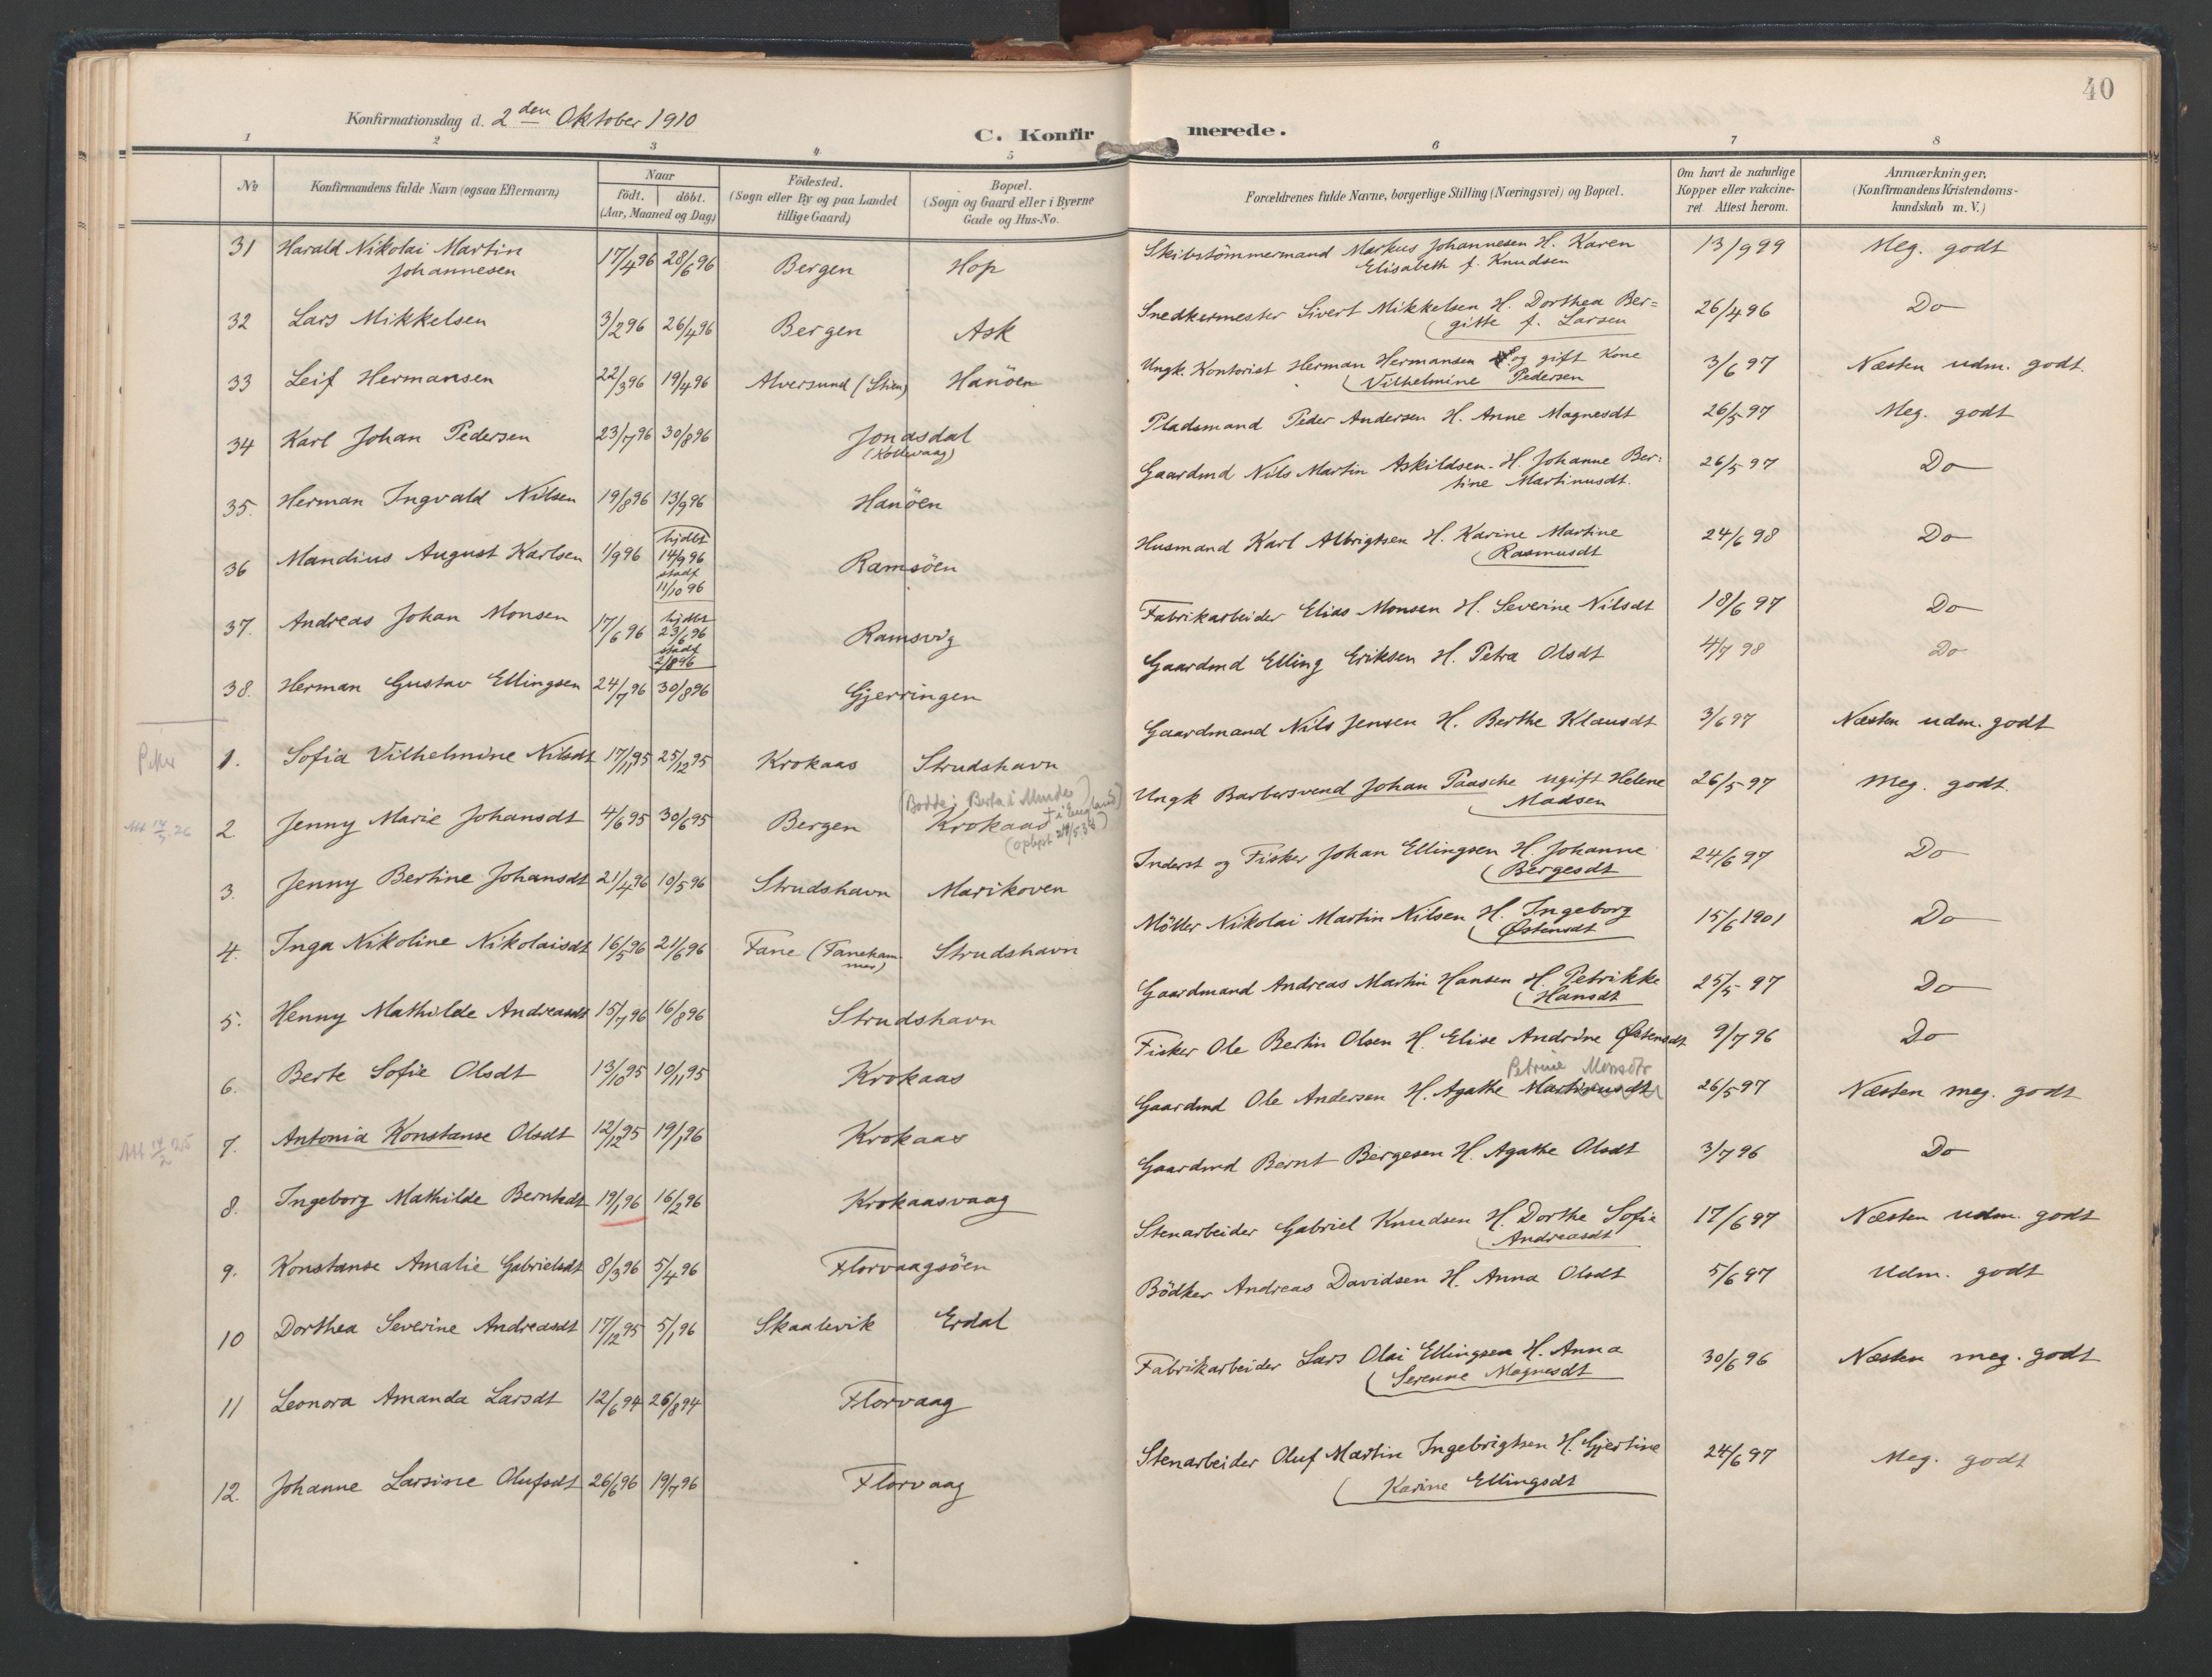 40
Konfirmationsdag d. 2den Oktober 1910
C. Konfirmerede.
1 2 3 4 5 6 7 8
No
Konfirmandens fulde Navn (ogsaa Efternavn)
Naar
födt. döbt.
(Aar, Maaned og Dag)
Födested.
(Sogn eller By og paa Landet
tillige Gaard)
Bopæl.
(Sogn og Gaard eller i Byerne
Gade og Hus-No.
Forældrenes fulde Navne, borgerlige Stilling (Næringsvei) og Bopæl.
Om havt de naturlige
Kopper eller vakcine-
ret. Attest herom.
Anmærkninger.
(Konfirmandens Kristendoms-
kundskab m. V.)
31 Harald Nikolai Martin
Johannesen 17/4 96 28/6 96 Bergen Hop
Skibstömmermand Markus Johannesen H. Karen
Elisabeth f. Knudsen
13/9 99 Meg. godt
32 Lars Mikkelsen 3/2 96 26/4 96 Bergen Ask
Snedkermester Sivert Mikkelsen H. Dorthea Ber=
gitte f. Larsen
26/4 96 Do
33 Leif Hermansen 22/3 96 19/4 96 Alversund (Stien) Hanöen
Ungk. Kontorist Herman Hermansen og gift Kone
Vilhelmine Pedersen
3/6 97 Næsten udm. godt.
34 Karl Johan Pedersen 23/7 96 30/8 96 Jonasdal
(Kollevaag)
Pladsmand Peder Andersen H. Anne Magnesdt 26/5 97 Meg. godt
35. Herman Ingvald Nilsen 19/8 96 13/9 96 Hanöen
Gaardmd Nils Martin Askildsen. H. Johanne Ber:
tine Martinusdt.
26/5 97 Do
36 Mandius August Karlsen 1/9 96 hjdbt
14/9 96
stadf
11/10 96
Ramsöen
Husmand Karl Albrigtsen H. Karine Martine
Rasmusdt
24/6 98 Do
37. Andreas Johan Monsen 17/6 96 hjdbt
23/6 96
stadf
2/8 96
Ramsvig
Fabrikarbeider Elias Monsen H. Severine Nilsdt 18/6 97 Do
38. Herman Gustav Ellingsen 24/7 96 30/8 96 Gjerringen
Gaardmd Elling Eriksen H. Petra Olsdt 4/7 98 Do
1. Sofia Vilhelmine Nilsdt 17/11 95 25/12 95 Krokaas Strudshavn
Gaardmand Nils Jensen H. Berthe Klausdt 3/6 97 Næsten udm. godt
2 Jenny Marie Johansdt 4/6 95 30/6 95 Bergen Krokaas
Ungk Barbersvend Johan Paasche ugift Helene
Madsen
26/5 97 Meg. godt.
3. Jenny Bertine Johansdt 21/4 96 10/5 96 Strudshavn Marikoven
Inderst og Fisker Johan Ellingsen H. Johanne
Bergesdt
24/6 97 Do
4. Inga Nikoline Nikolaisdt 16/5 96 21/6 96 Fane (Faneham-
mer) Strudshavn
Möller Nikolai Martin Nilsen H. Ingeborg
Østensdt
15/6 1901 Do
5. Henny Mathilde Andreasdt 15/7 96 16/8 96 Strudshavn
Gaardmand Andreas Martin Hansen H. Petrikke
Hansdt
25/5 97 Do
6. Berte Sofie Olsdt 13/10 95 10/11 95 Krokaas
Fisker Ole Bertin Olsen H. Elise Andrine Østensdt 9/7 96 Do
7. Antonia Konstanse Olsdt 12/12 95 19/1 96 Krokaas
Petrine Monsdtr
Gaardmd Ole Andersen H. Agathe Martinusdt 26/5 97 Næsten meg. godt
8. Ingeborg Mathilde Berntsdt 19/1 96 16/2 96 Krokaasvaag
Gaardmd Bernt Bergesen H. Agathe Olsdt 3/7 96 Do
9. Konstanse Amalie Gabrielsdt 8/3 96 5/4 96 Florvaagsöen
Stenarbeider Gabriel Knudsen H. Dorthe Sofie
Andreasdt
17/6 97 Næsten udm. godt
10 Dorthea Severine Andreasdt 17/12 95 5/1 96 Skaalevik Erdal
Bödker Andreas Davidsen H. Anna Olsdt 5/6 97 Udm. godt
11 Leonora Amanda Larsdt 12/6 94 26/8 94 Florvaag
Fabrikarbeider Lars Olai Ellingsen H. Anna
Serenne Magnesdt
30/6 96 Næsten meg. godt
12. Johanne Larsine Olufsdt 26/6 96 19/7 96 Florvaag
Stenarbeider Oluf Martin Ingebrigtsen H. Gjertine
Karine Ellingsdt
24/6 97 Meg. godt